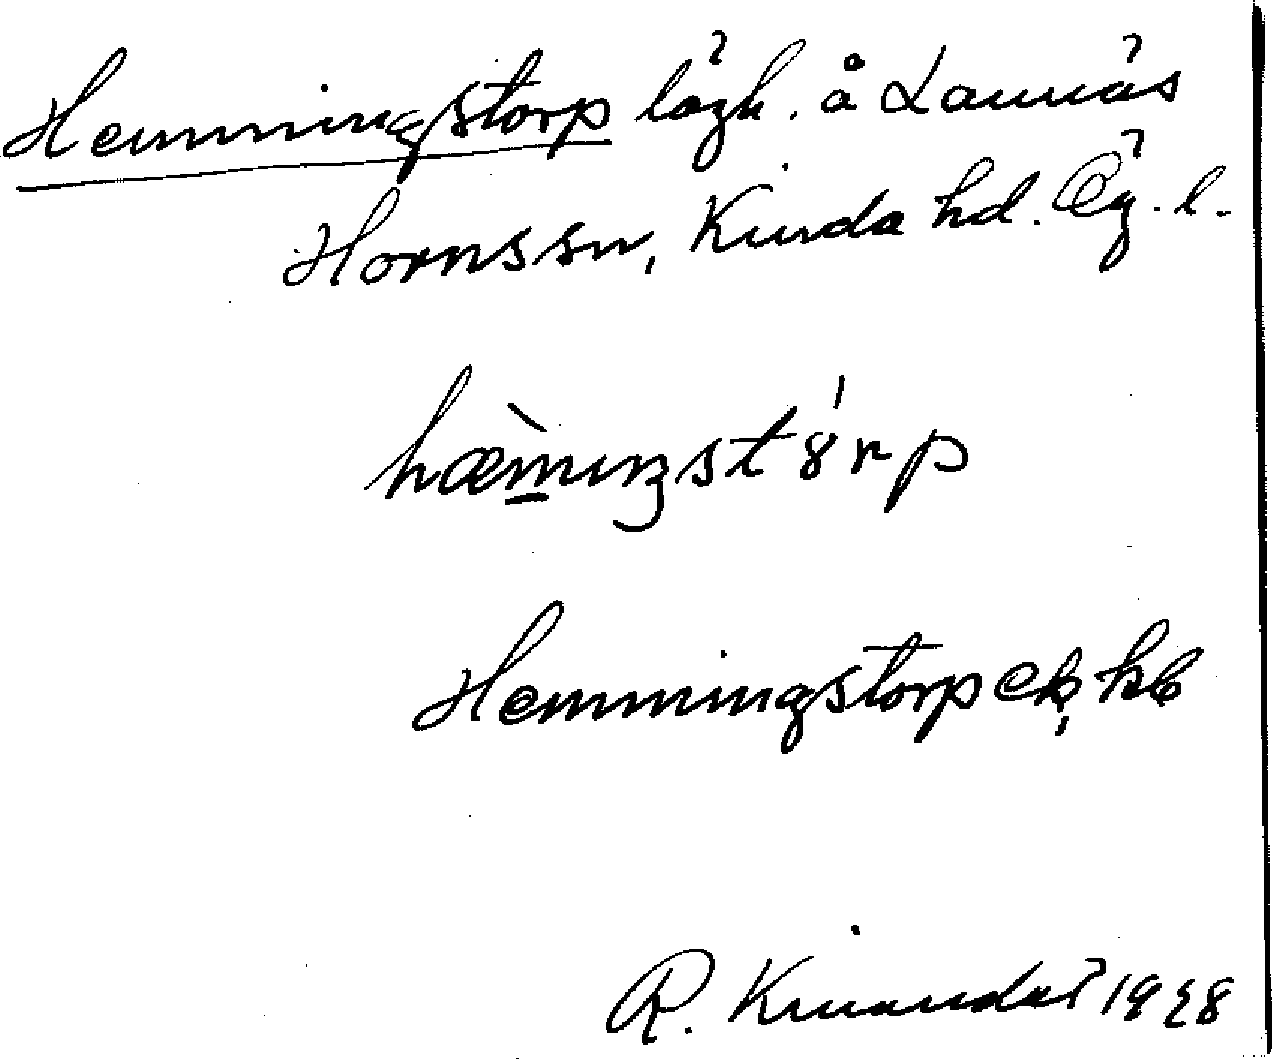 Hemmingstorp lägh. å Lannäs
Horns sn, Kinda hd. Ög. l.
hæ̀mıŋstȣ́rp
Hemmingstorp ek, kb
R. Kinander 1928